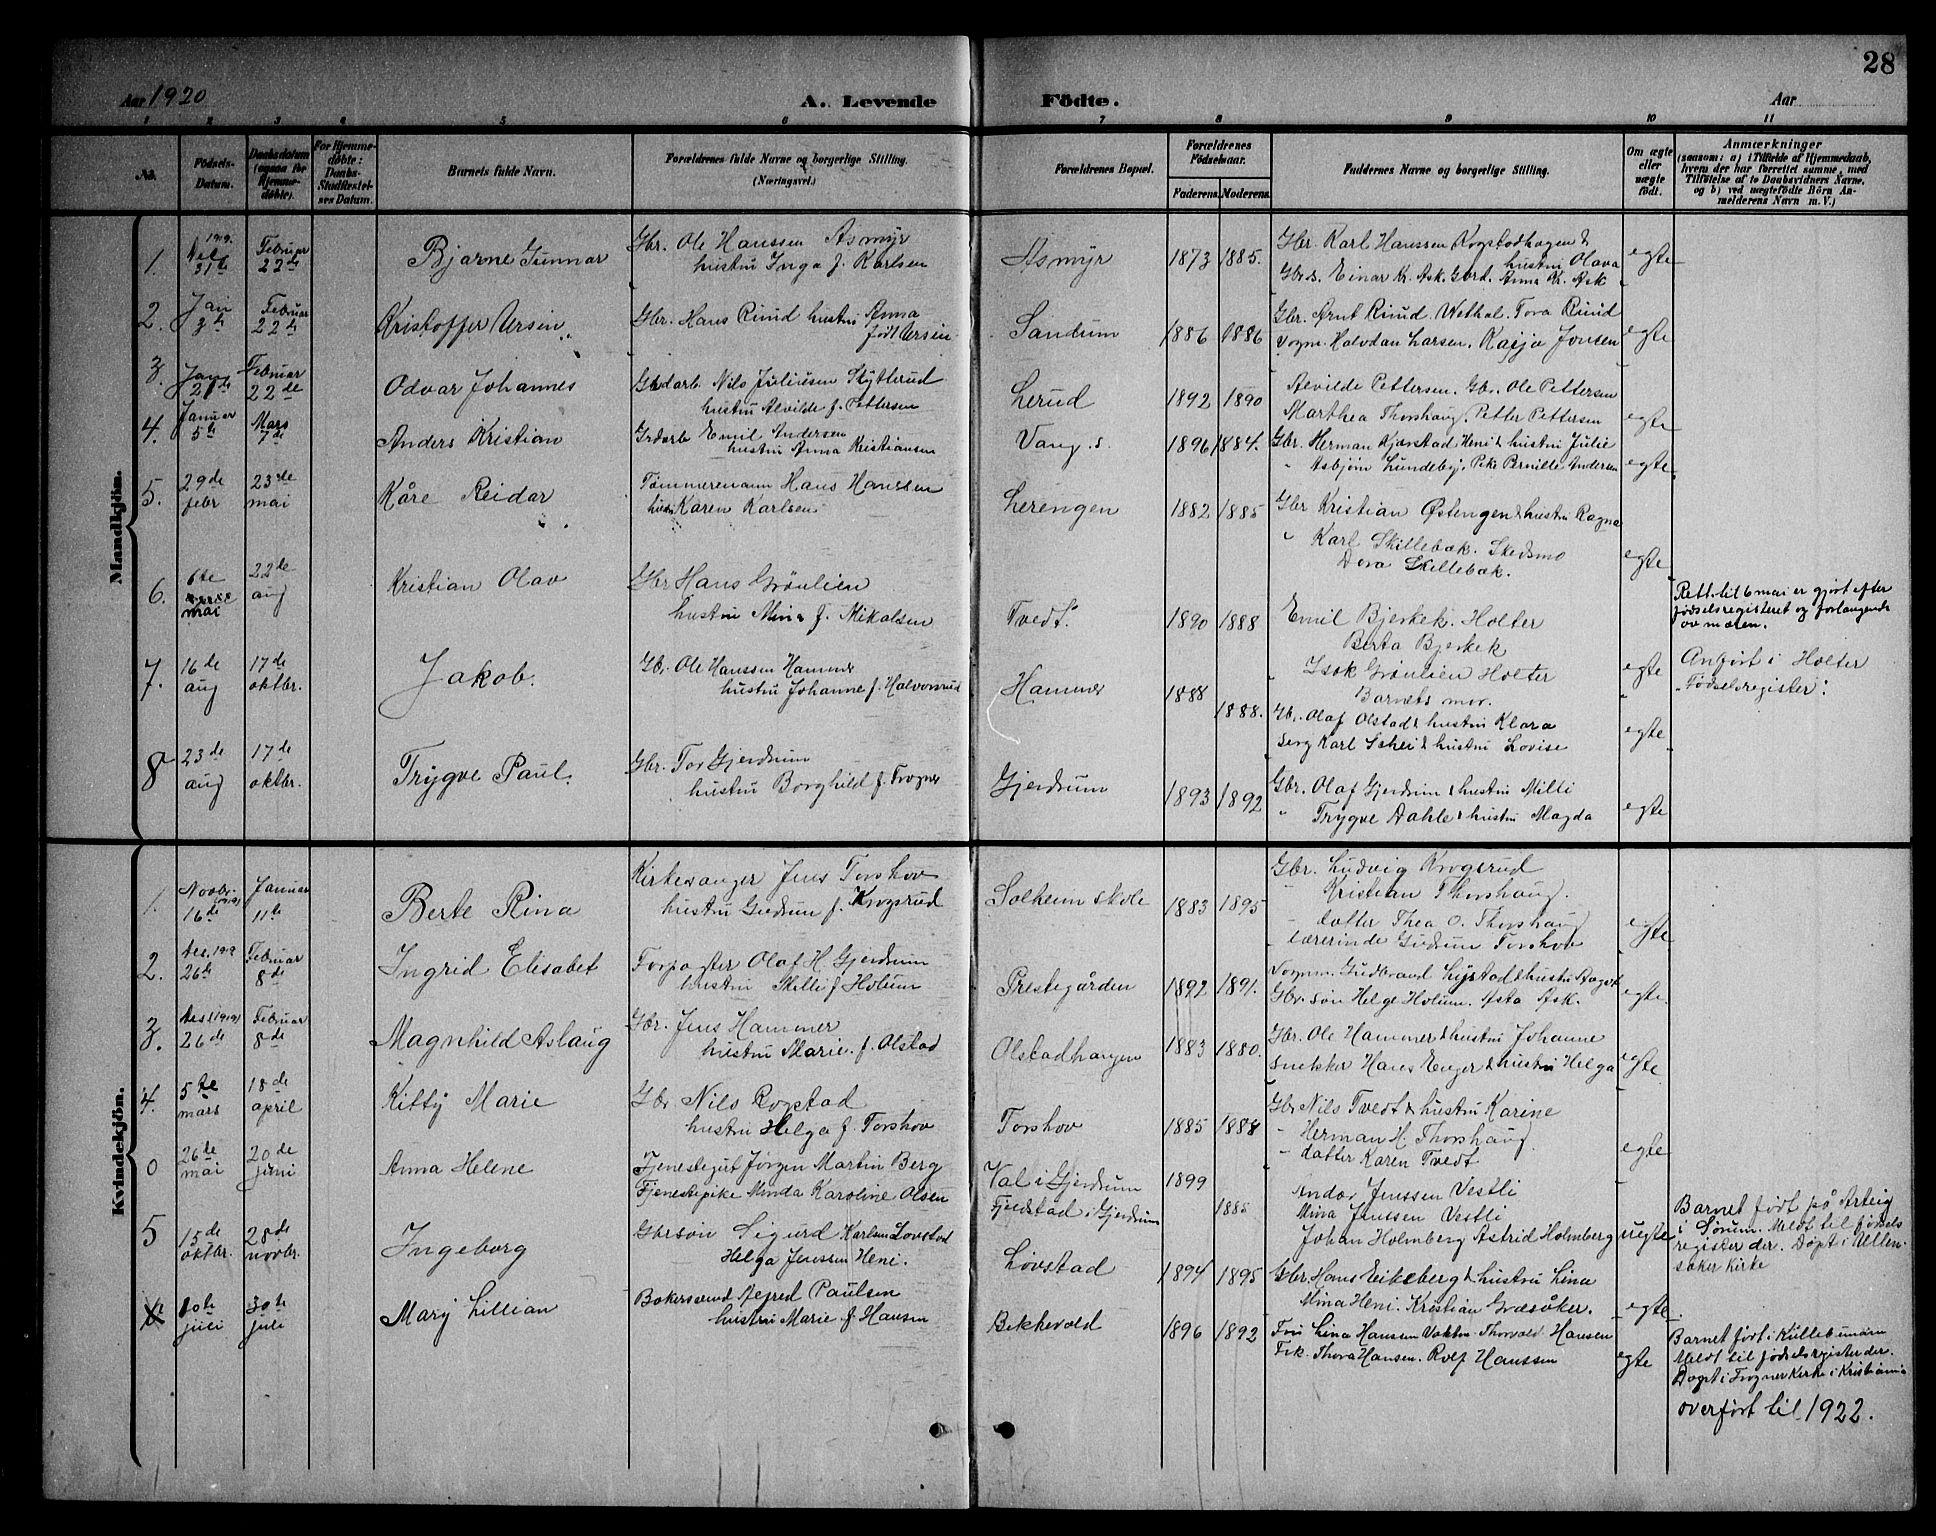 28
Aar 1920
A. Levende Födte.
Aar
1 2 3 4 5 6 7 8 9 10 11
No.
Födsels-Datum.
Daabsdatum (ogsaa for Hjemme-döbte).
For Hjemme-döbte: Daabs-Stadfæstel-ses Datum.
Barnets fulde Navn.
Forældrenes fulde Navne og borgerlige Stilling.
(Næringsvei.)
Forældrenes Bopæl.
Forældrenes Födselsaar.
Faderens. Moderens.
Faddernes Navne og borgerlige Stilling.
Om ægte eller uægte födt.
Anmærkninger
(saasom: a) i Tilfælde af Hjemmedaab, hvem der har forrettet samme, med Tilföielse af to Daabsvidners Navne, og b) ved uægtefödte Börn An-melderens Navn m. V.)
Mandkjön.
1. 1919. 31te Februar 22de Bjarne Gunnar Gbr. Ole Hanssen Asmyr
hustru Inga f. Karlsen Asmyr 1873 1885. Gbr. Karl Hanssen Rogstadhagen & hustru Olava
Einar Kr. Ask. Anna Kr. Ask egte
2. Jan 3de Februar 22de Kristoffer Ursin Gbr. Hans Rind hustru Anna
født Ursin Sandum 1886 1886 Gbr. Arnt Rind. Wethal. Tora Rind
Halvdan Larsen. Kasja Jonsen egte
3. Jan 21de Februar 22de Odvar Johannes Gbdarb Nils Juliussen Skytterud
hustru Alvilde f. Pettersen Lerud 1892 1890 Alvilde Pettersen. Gbr. Ole Pettersen
Marthea Thorshaug. Petter Pettersen egte
4. Januar 5te Mars 7de Anders Kristian Grdarb Emil Andersen
hustru Anna Kristiansen Vang. s. 1896 1884. Gbr. Herman Kjærstad Heni & hustru Julie
" Asbjørn Lundeby, Pike Pernille Andersen egte
5. 29de febr 23de mai Kåre Reidar Tømmermann Hans Hanssen
hustr Karen Karlsen Lerengen 1882 1885 Gbr Kristian Østengen & hustru Ragna
" Karl Skillebæk. Skedsmo
Dora Skillebæk. egte
6. 6te mai 22de aug Kristian Olav Gbr Hans Grønlien
hustru Mina f. Mikalsen Tvedt. 1890 1888 Emil Bjerkek. Holter
Berta Bjerkek
Isak Grønlien Holter
Barnets mor. egte
Rett. til 6 mai er gjort efter
fødselsregisteret og forlangende
av moren.
Anført i Holter
"Fødselsregister".
7. 16de aug 17de oktbr. Jakob. Gbr. Ole Hanssen Hammer
hustru Johanne f. Halvorsrud Hammer 1888 1888. Gbr. Olaf Olstad & hustru Klara
Serg Karl Schei & hustru Lovise egte
8 23de aug 17de oktbr. Trygve Paul. Gbr. Tor Gjerdrum
hustru Borghild f. Frogner Gjerdrum 1893 1892 Gbr. Olaf Gjerdrum & hustru Milli
" Trygve Dahle & hustru Magda egte
Kvindekjön.
1. Novbr. (1919) 16de Januar 11te Berte Rina Kirkesanger Jens Torshov
hustru Gudrun f. Krogsrud Solheim skole 1883 1895 Gbr. Ludvig Krogsrud
" Kristian Thorshaug.
" datter Thea O. Thorshaug
lærerinde Gudrun Torshov egte
2. Des. 1919 26de Februar 8de Ingrid Elisabet Forpagter Olaf H. Gjerdrum
hustru Milli f Holum Prestegården 1892 1891. Gudbrand Lystad & hustru
Gbr. søn Helge Holum. Asta Ask. egte
3. Des (1919) 26de Februar 8de Magnhild Aslaug Gbr. Jens Hammer
hustru Marie. f. Olstad Olstadhaugen 1883 1880. Gbr. Ole Hammer & hustru Johanne
snekker Hans Enger & hustru Helga egte
4. 5te mars 18de april Kitty Marie Gbr. Nils Rogstad
hustru Helga f. Torshov Torshov 1885 1888 Gbr Nils Tvedt & hustru Karine
" Herman H. Thorshaug
" datter Karen Tvedt egte
0 26de mai 20de juni Anna Helene Tjenestegut Jørgen Martin Berg
Tjenestepike Minda Karoline Olsen Val i Gjerdrum
Fjeldstad i Gjerdrum 1899 1885 Andor Jenssen Vestli
Mina Jenssen Vestli
Johan Holmberg Astrid Holmberg uegte Barnet født på Arteig
i Sørum. Meldt til fødsels
register der. Døpt i Ullen-
saker kirke
5 15de oktbr. 28de novbr. Ingeborg Gbrsøn Sigurd Karlsen Løvstad
Helga Jenssen Heni. Løvstad 1894 1895 Gbr Hans Eikeberg & hustru Lina
Mina Heni. Kristian Græsåker. egte
10de juli 30te juli Mary Lillian Bokersvend Alfred Paulsen
hustru Marie f Hansen Bekkevold 1896 1892 Fru Lina Hanssen Thorvald Hansen
Frk. Thora Hansen. Rolf Hanssen egte Barnet født i
Meldt til fødselsregister der.
Døpt i Frogner Kirke i Kristiania
overført til 1922.